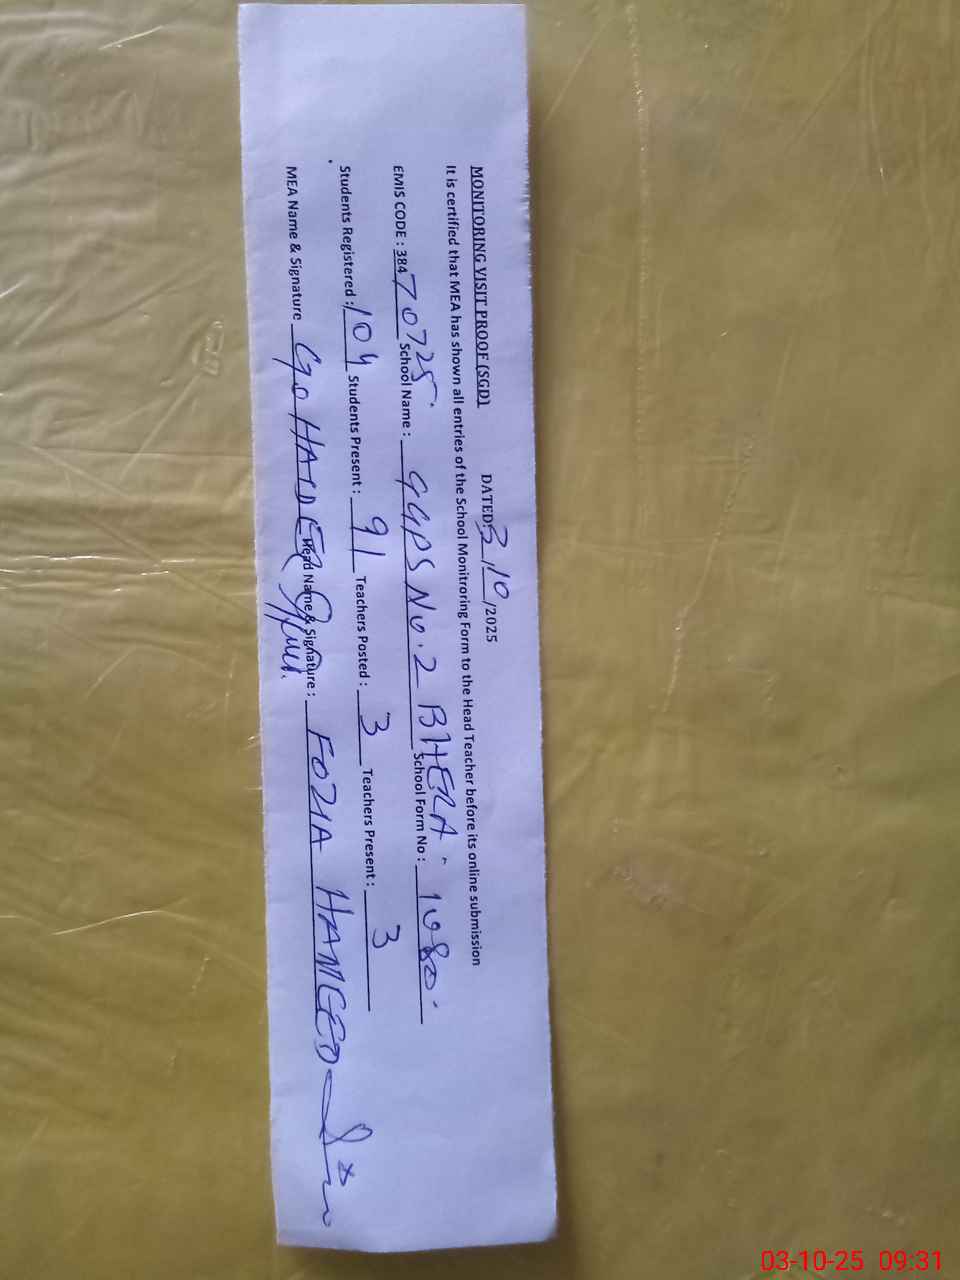 MONITORING VISIT PROOF (SGD) DATED 3/10/2025
It is certified that MEA has shown all entries of the School Monitroring Form to the Head Teacher before its online submission
EMIS CODE : 38470725 School Name : GGPS No. 2 BHERA. School Form No : 1080.
Students Registered : 104 Students Present : 91 Teachers Posted : 3 Teachers Present : 3
MEA Name & Signature HAIDER Head Name & Signature : FOZIA HAMEED
03-10-25 09:31